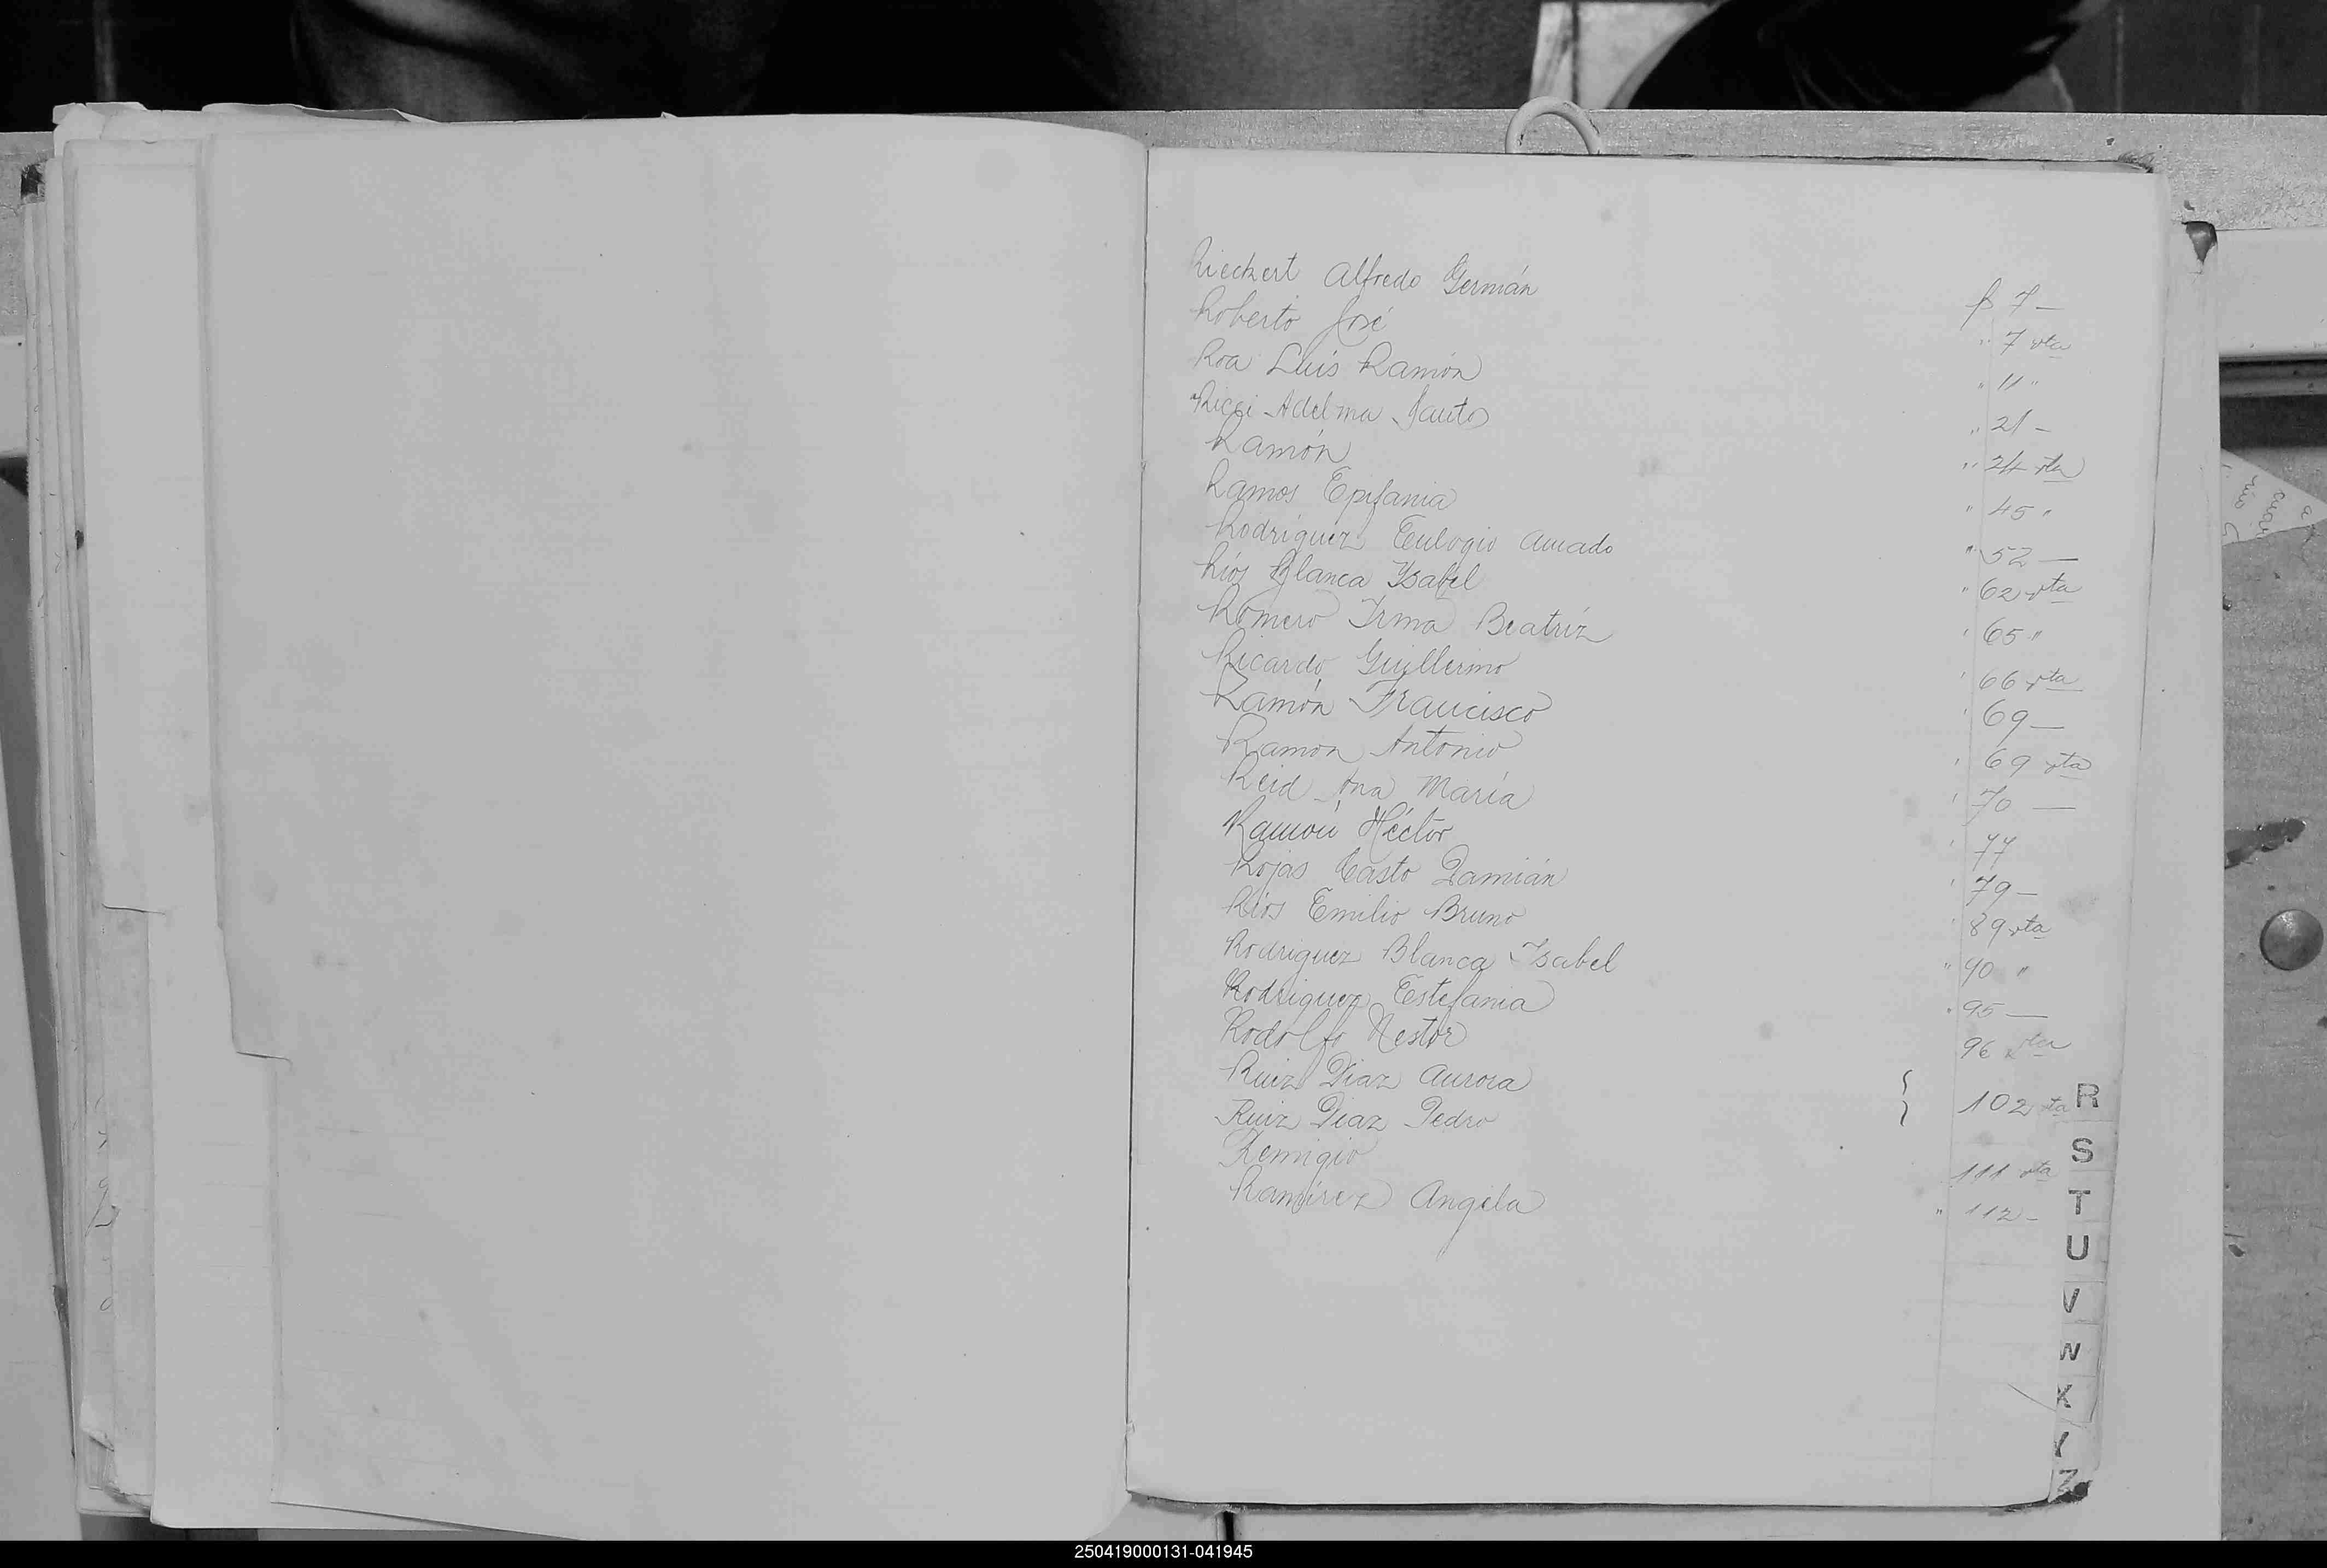 Rieckert Alfredo Germán f 7 —
Roberto José " 7 vta
Roa Luis Ramón " 11 "
Ricci Adelma Santo " 21 —
Ramón " 24 vta
Ramos Epifania " 45 "
Rodríguez Eulogio Amado " 52 —
Ríos Blanca Ysabel " 62 vta
Romero Irma Beatriz " 65 "
Ricardo Guillermo " 66 vta
Ramón Francisco " 69 —
Ramon Antonio " 69 vta
Reid Ana María " 70 —
Ramón Héctor " 77
Rojas Casto Damián " 79 —
Ríos Emilio Bruno " 89 vta
Rodriguez Blanca Ysabel " 90 "
Rodriguez Estefania " 95 —
Rodolfo Nestor 96 vta
Ruiz Diaz Aurora
Ruiz Diaz Pedro } 102 vta
Remigio 111 vta
Ramírez Angela " 112 —
R
S
T
U
V
W
X
Y
Z
250419000131-041945